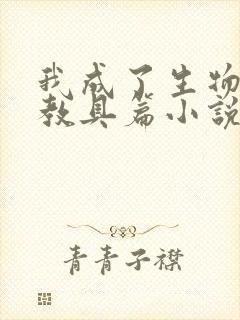 我成了生物
教具篇小說
青青子襟